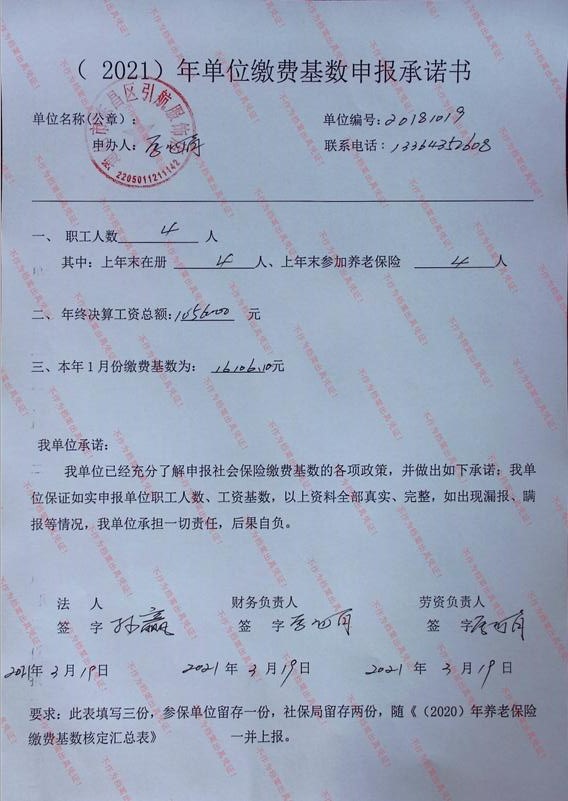 （ 2021）年单位缴费基数申报承诺书
单位名称(公章)： 单位编号:20181019
申办人: 联系电话：13364352608
昌区引航服饰
2205011211142
一、 职工人数 4 人
其中: 上年末在册 4 人、上年末参加养老保险 4 人
二、年终决算工资总额: 元
三、本年1月份缴费基数为: 16106.10元
我单位承诺:
我单位已经充分了解申报社会保险缴费基数的各项政策，并做出如下承诺: 我单
位保证如实申报单位职工人数、工资基数，以上资料全部真实、完整，如出现漏报、瞒
报等情况，我单位承担一切责任，后果自负。
法 人 财务负责人 劳资负责人
签 字 孙赢 签 字 签 字
2021年 3 月 19 日 2021 年 3 月 19 日 2021 年 3 月 19 日
要求: 此表填写三份，参保单位留存一份，社保局留存两份，随《（2020）年养老保险
缴费基数核定汇总表》 一并上报。